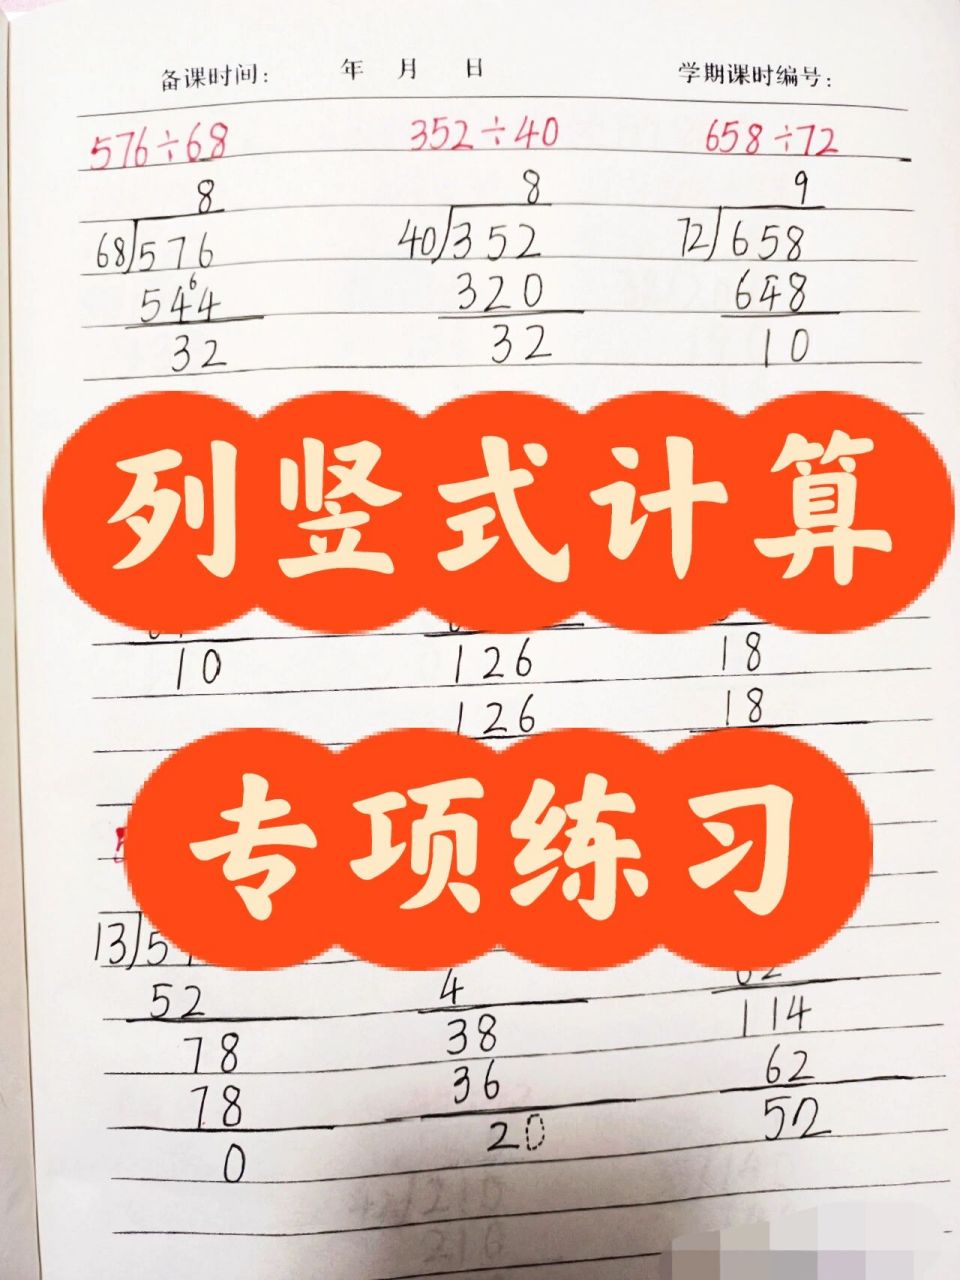 备课时间： 年 月 日 学期课时编号：
576÷68 352÷40 658÷72
8 8 9
68 576 40 352 72 658
6
544 320 648
32 32 10
列竖式计算
10 126 18
126 18
专项练习
13 5
52 4 114
78 38 62
78 36 52
0 20